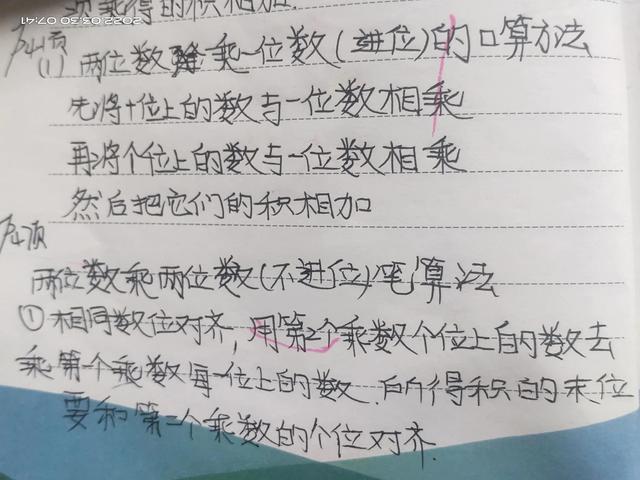 次乘得的积相加.
2022 03:30 07:41
P41页
(1) 两位数乘一位数(进位)的口算方法
先将十位上的数与一位数相乘
再将个位上的数与一位数相乘
然后把它们的积相加
页
两位数乘两位数(不进位)笔算法
①相同数位对齐,用第2个乘数个位上的数去
乘第一个乘数每一位上的数.所得积的末位
要和第一个乘数的个位对齐.